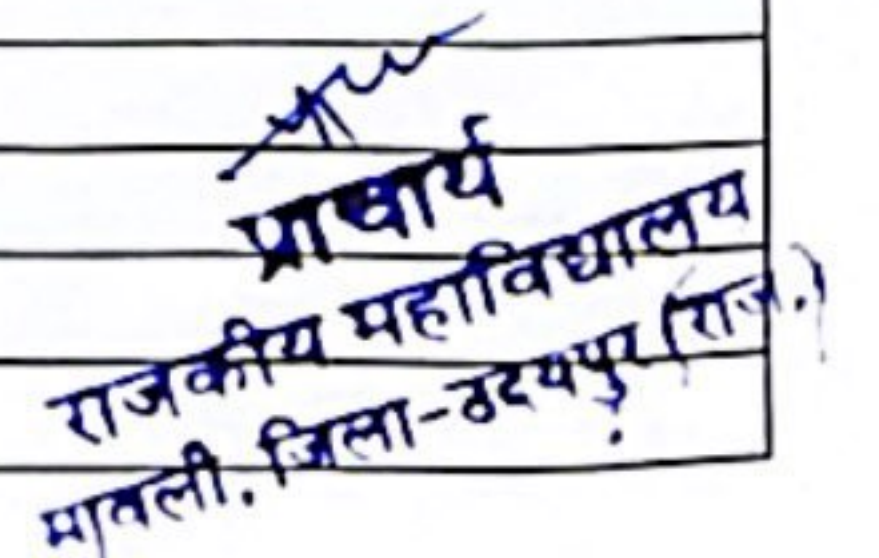 प्राचार्य
राजकीय महाविद्यालय
मावली. जिला-उदयपुर (राज.)